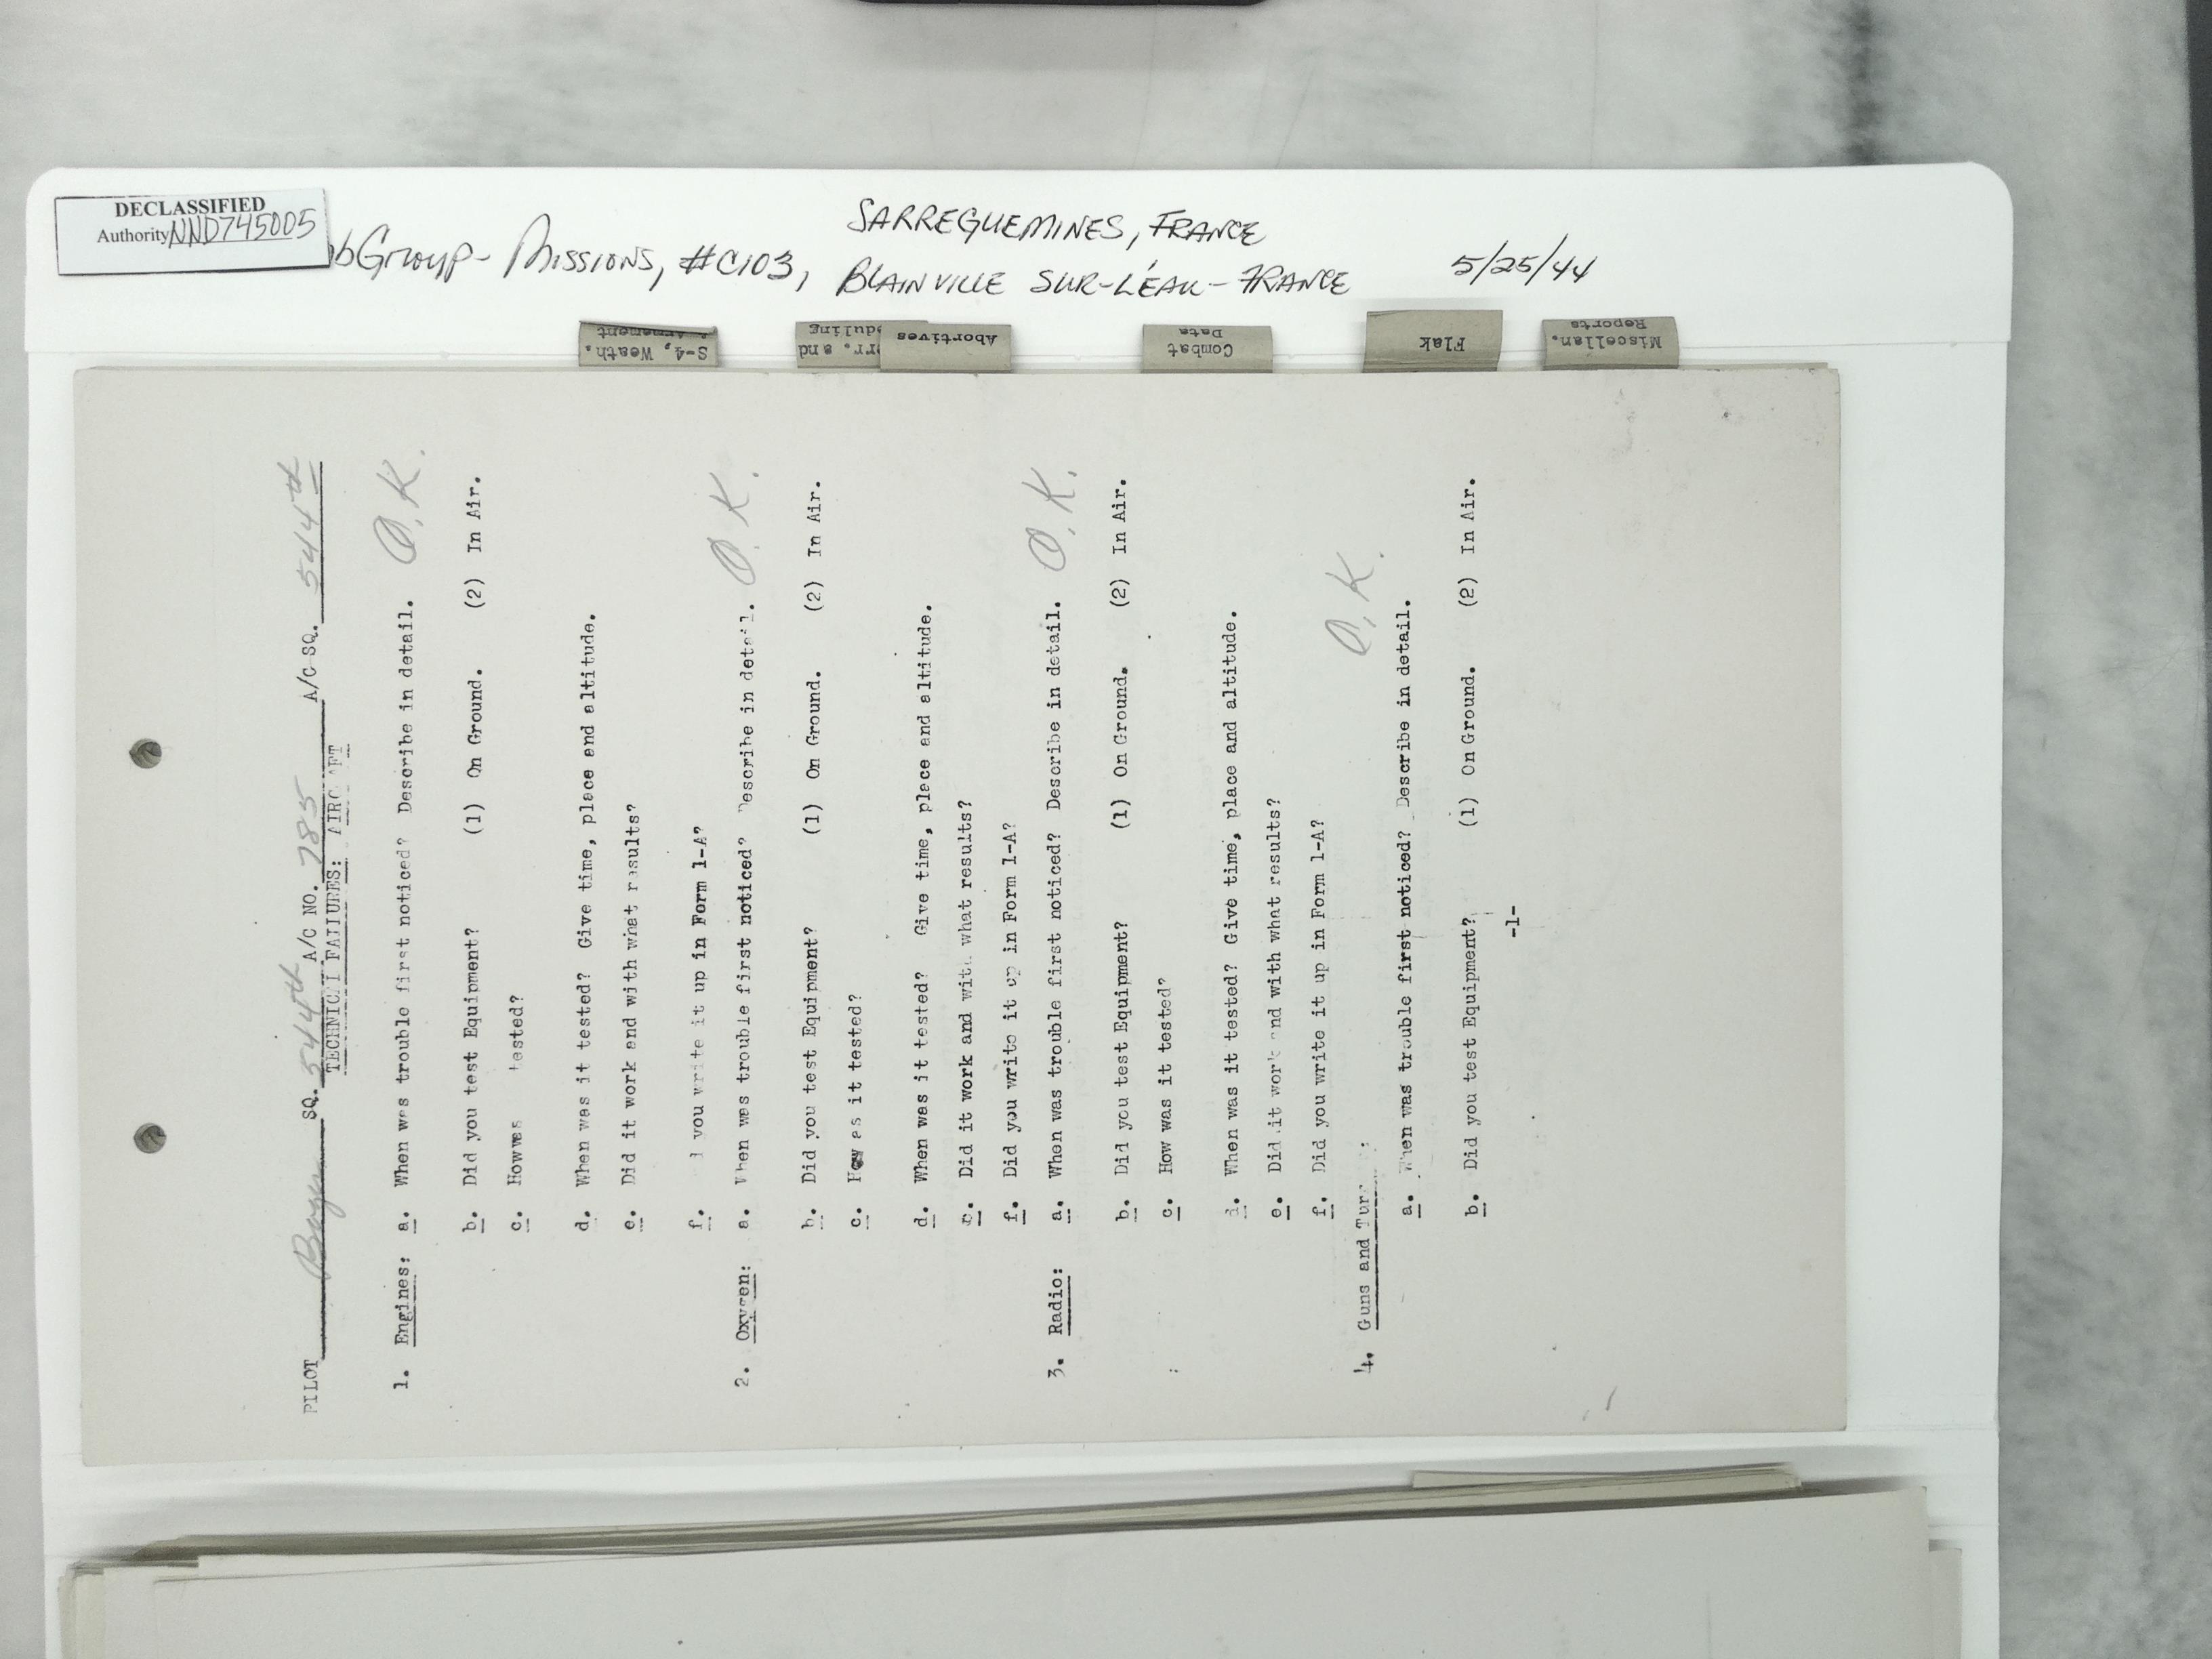 DECLASSIFIED
Authority NND745005
bGroup - Missions, #C103,
SARREGUEMINES, FRANCE
BLAINVILLE SUR-L'EAU - FRANCE
5/25/44
S-4, Weath. & Armement
rr. and duling
Abortives
Combat Data
Flak
Miscellan. Reports
PILOT Boger SQ. 544th A/C NO. 785 A/C SQ. 544th
TECHNICAL FAILURES: AIRCRAFT
1. Engines: a. When was trouble first noticed? Describe in detail. O.K.
b. Did you test Equipment? (1) On Ground. (2) In Air.
c. How was tested?
d. When was it tested? Give time, place and altitude.
e. Did it work and with what results?
f. d you write it up in Form 1-A?
2. Oxygen: a. When was trouble first noticed? Describe in detail. O.K.
b. Did you test Equipment? (1) On Ground. (2) In Air.
c. How as it tested?
d. When was it tested? Give time, place and altitude.
e. Did it work and with what results?
f. Did you write it up in Form 1-A?
3. Radio: a. When was trouble first noticed? Describe in detail. O.K.
b. Did you test Equipment? (1) On Ground. (2) In Air.
c. How was it tested?
d. When was it tested? Give time, place and altitude.
e. Did it work and with what results?
f. Did you write it up in Form 1-A?
4. Guns and Tur : O.K.
a. When was trouble first noticed? Describe in detail.
b. Did you test Equipment? (1) On Ground. (2) In Air.
-1-